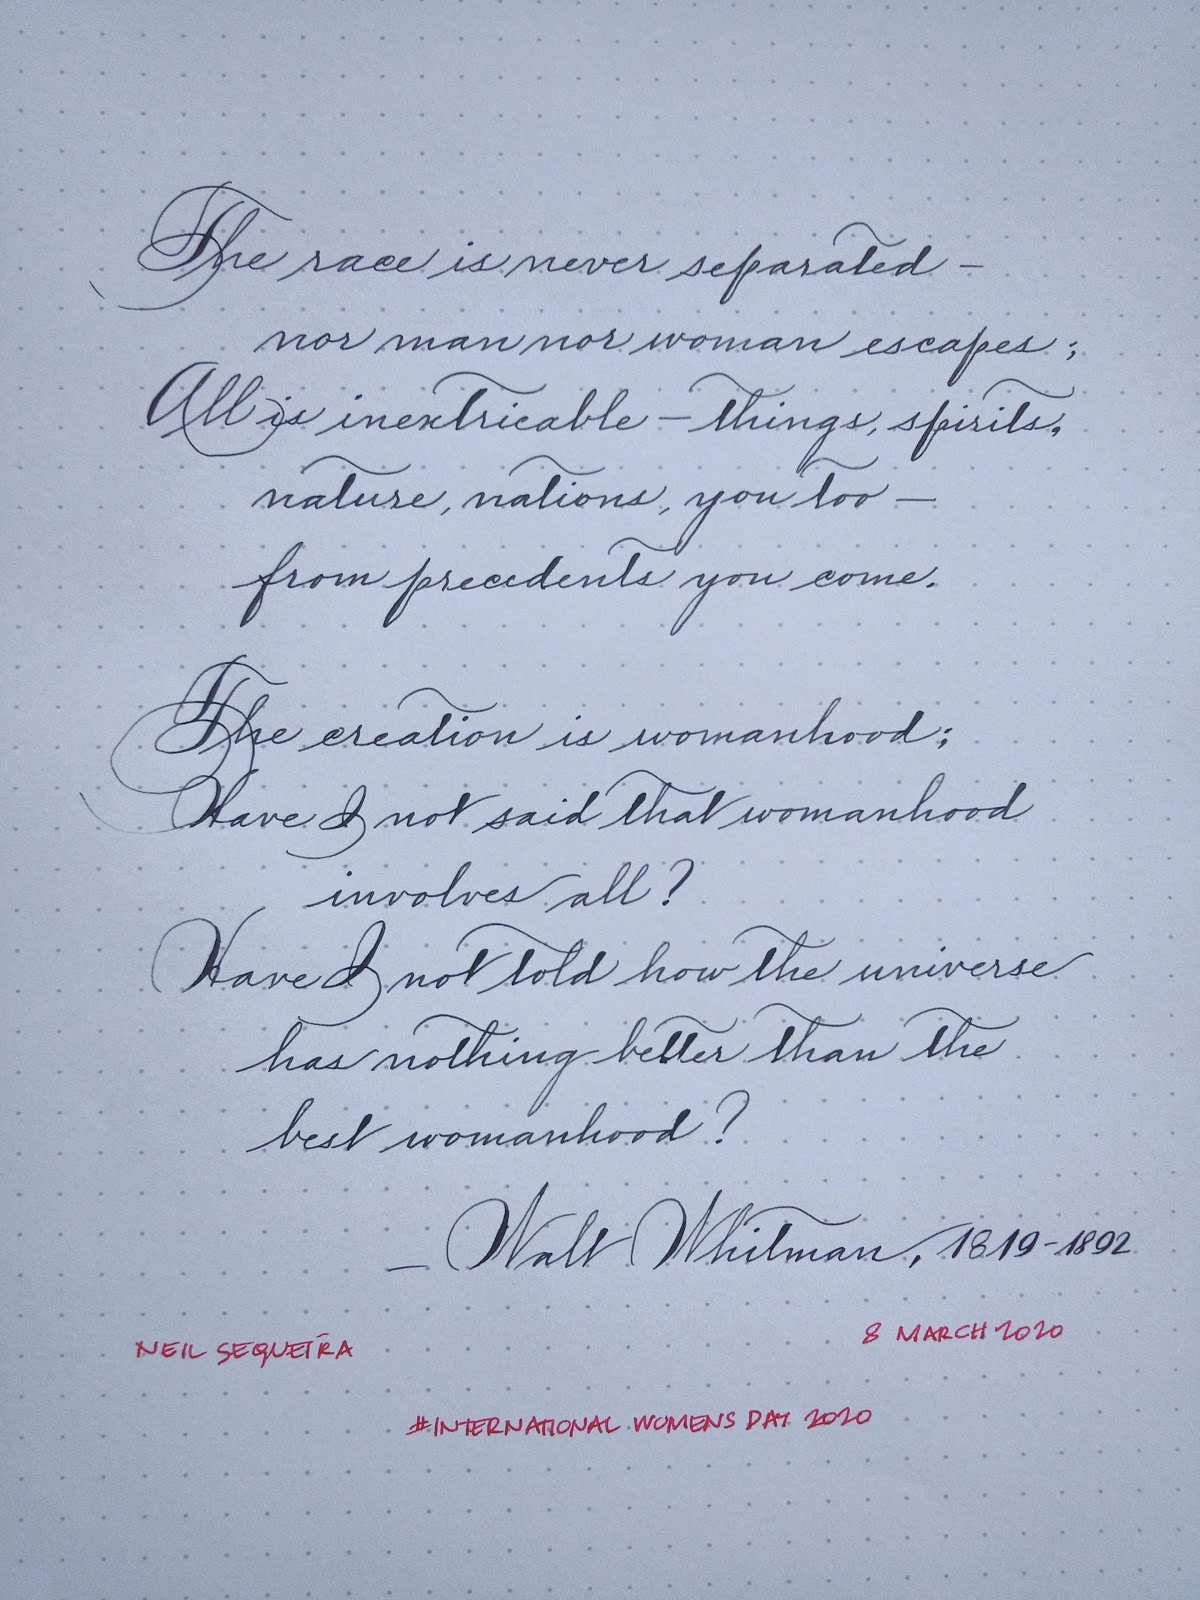 The race is never separated –
nor man nor woman escapes;
All is inextricable – things, spirits,
nature, nations, you too –
from precedents you come.
The creation is womanhood;
Have I not said that womanhood
involves all?
Have I not told how the universe
has nothing better than the
best womanhood?
– Walt Whitman, 1819-1892
NEIL SEQUEIRA
8 MARCH 2020
#INTERNATIONAL WOMENS DAY 2020